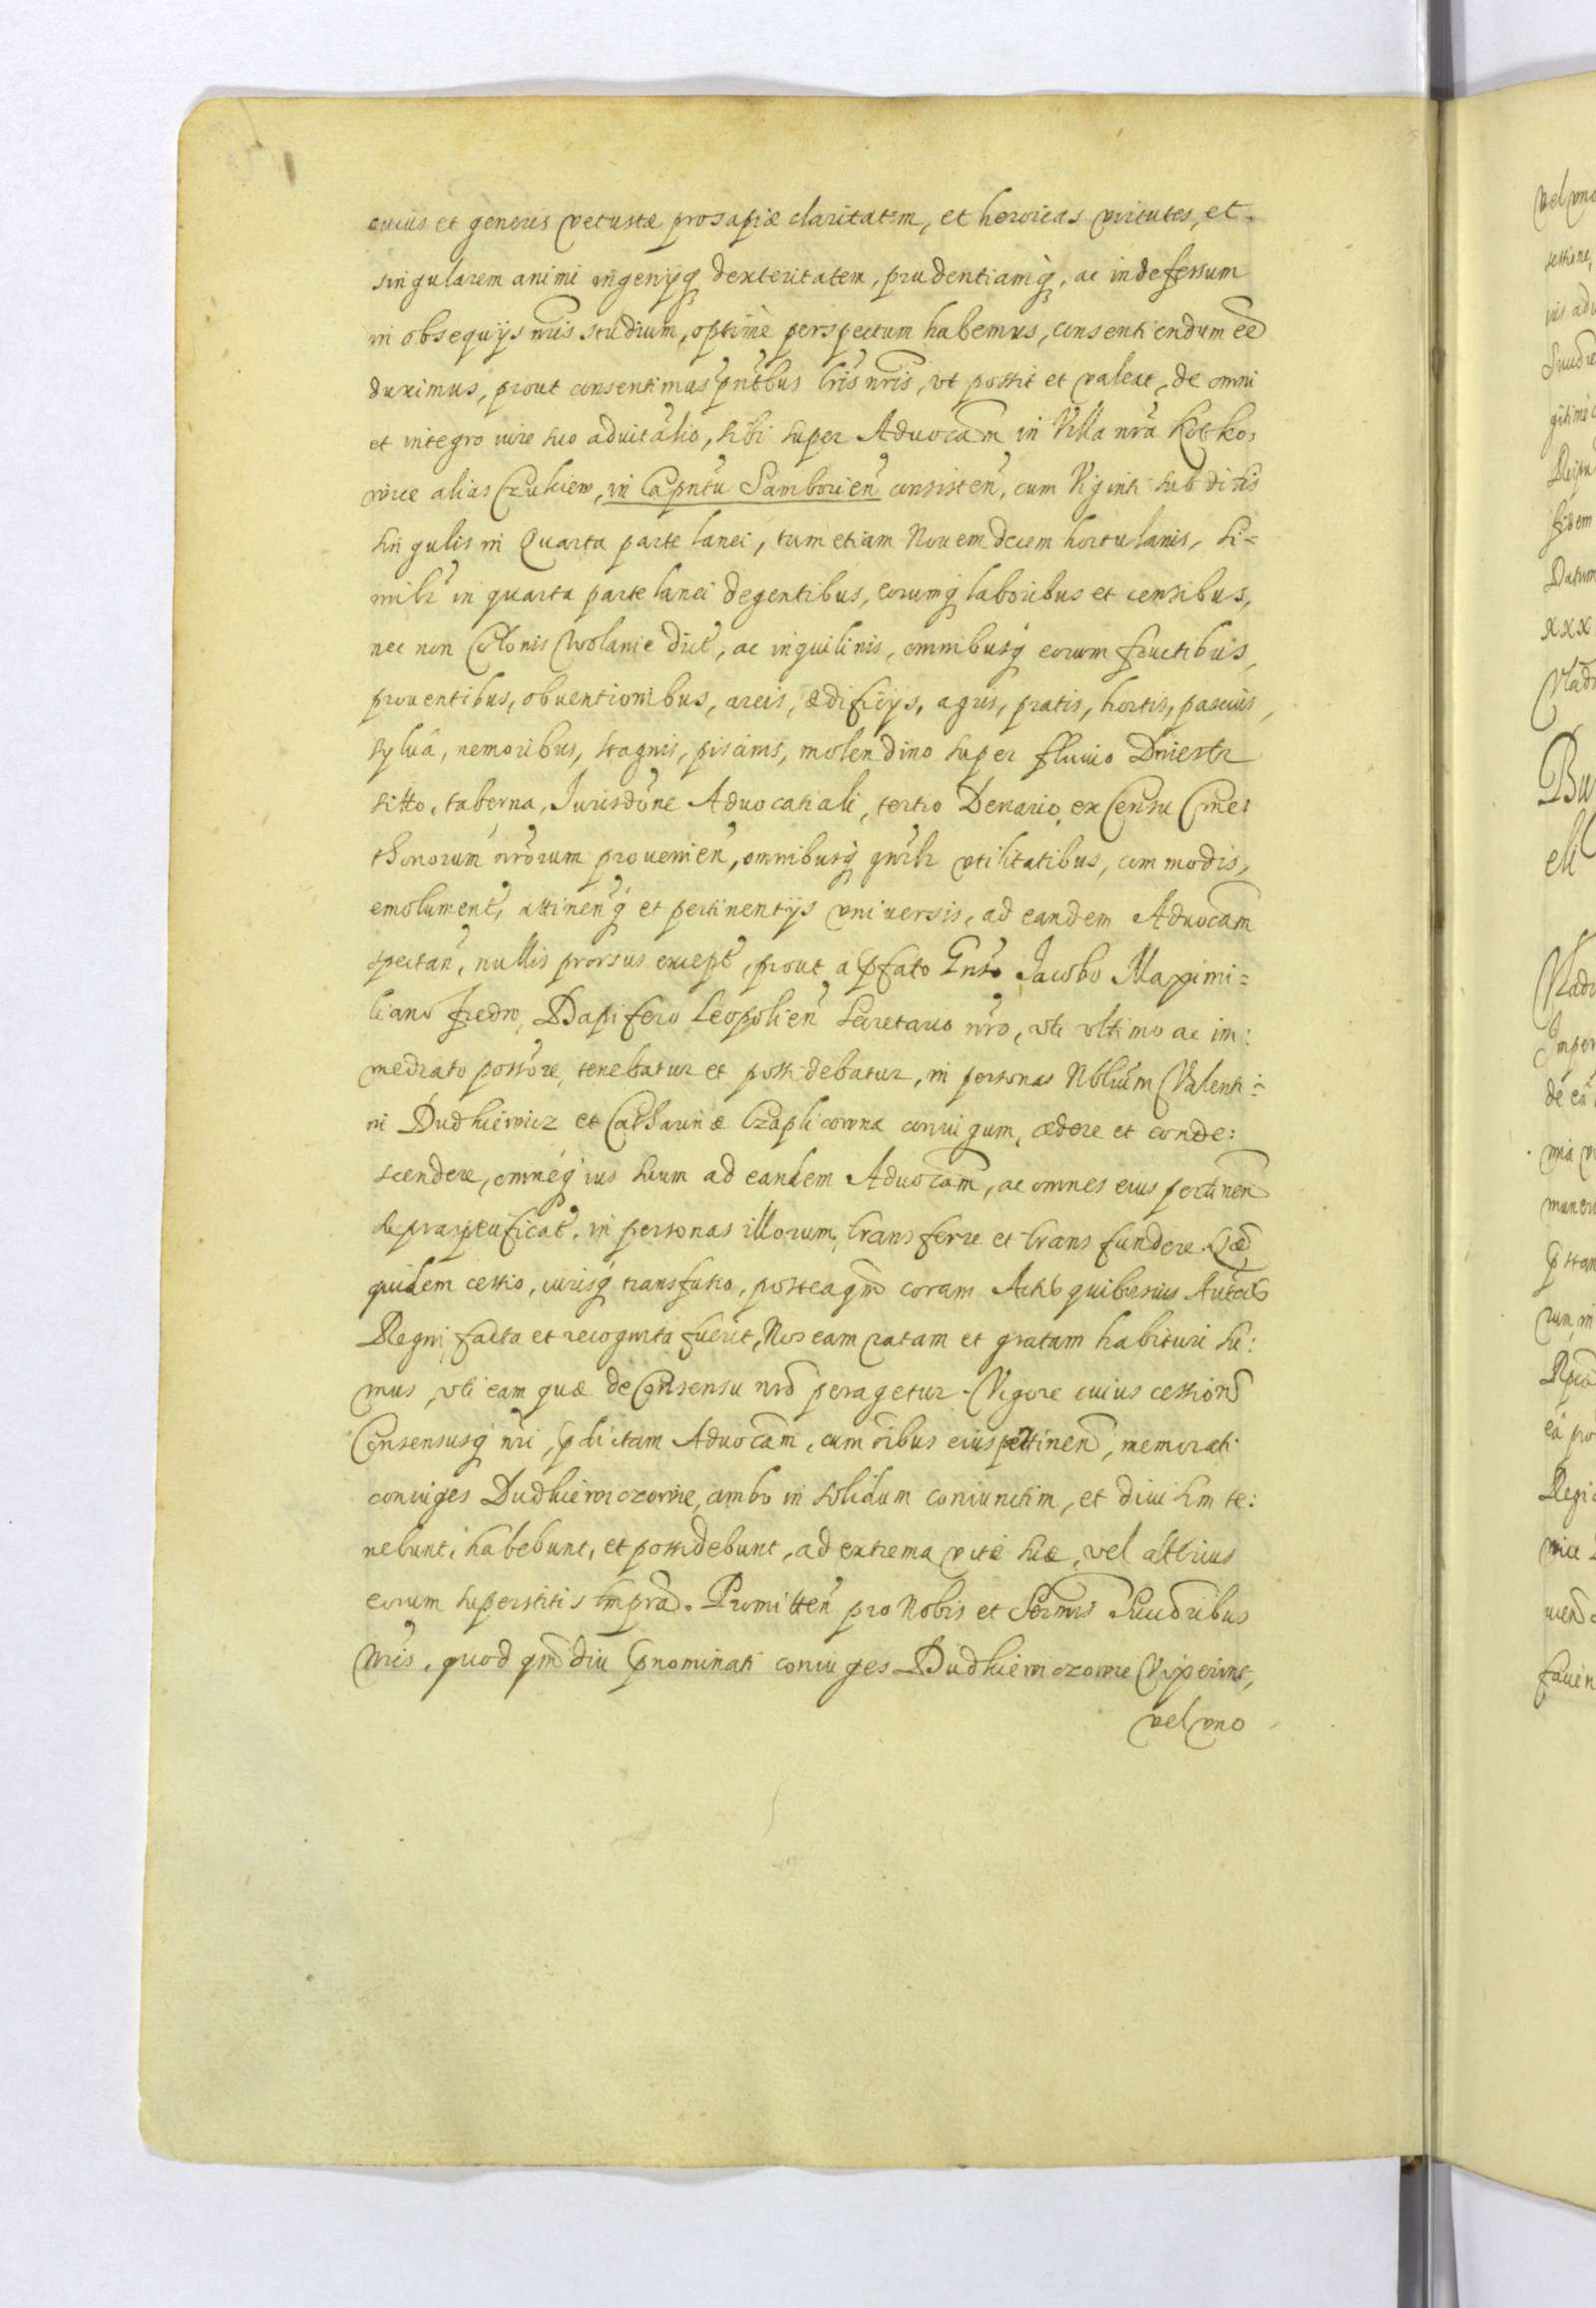 cuius et generis vetustæ prosapiæ claritatem, et heroicas virtutes, et
singularem animi ingenijq dexteritatem, prudentiamq, ac indefessum
in obsequijs nris studium, optime perspectum habemus, consentiendum eē
duximus, prout consentimus pntbus lris nris, vt possit et valeat, de omni
et integro iure suo aduitalio, sibi super Aduocam in Villa nra Kotko:
wice alias Czukiew, in Capntu Samborien consisten, cum Viginti subditis
singulis in Quarta parte lanei, tum etiam Nouemdecem hortulanis, si=
milr in quarta parte lanei degentibus, eorumq laboribus et censibus,
nec non Colonis Wolanie dict, ac inquilinis, omnibusq eorum fructibus,
prouentibus, obuentionibus, areis, ædificijs, agris, pratis, hortis, pascuis,
syluâ, nemoribus, stagnis, piscinis, molendino super fluuio Dniestr
sitto, taberna, Jurisdone Aduocatiali, tertio Denario, ex Censu Cme:
thonorum nrorum prouenien, omnibusq gnrlr vtilitatibus, commodis,
emolument, attinenq et pertinentijs vniuersis, ad eandem Aduocam
spectan, nullis prorsus except, prout a pfato Gnso Jacobo Maximi=
liano Fredro, Dapifero Leopolien Secretario nro, vti vltimo ac im:
mediato possore, tenebatur et possidebatur, in personas Nblium Valenti=
ni Dudkiewicz et Catharinæ Czaplicowna coniugum, cædere et conde:
scendere, omneq ius suum ad eandem Aduocam, ac omnes eius pertinen
supraspecificat, in personas illorum, transferre et transfundere. Quæ
quidem cessio, iurisq transfusio, posteaqm coram Actis quibusuis Autcis
Regni facta et recognita fuerit, Nos eam ratam et gratam habituri su:
mus, vti eam quæ de Consensu nro peragetur. Vigore cuius cession
Consensusq nri, pdictam Aduocam, cum oibus eius pertinen, memorati
coniuges Dudkiewiczowie, ambo in solidum coniunctim, et diuisim te:
nebunt, habebunt, et possidebunt, ad extrema vitæ suæ, vel altrius
eorum superstitis tmpra. Promitten pro Nobis et Sermis Succribus
Nris, quod qmdiu pnominati coniuges Dudkiewiczowie Vixerint,
vel vno